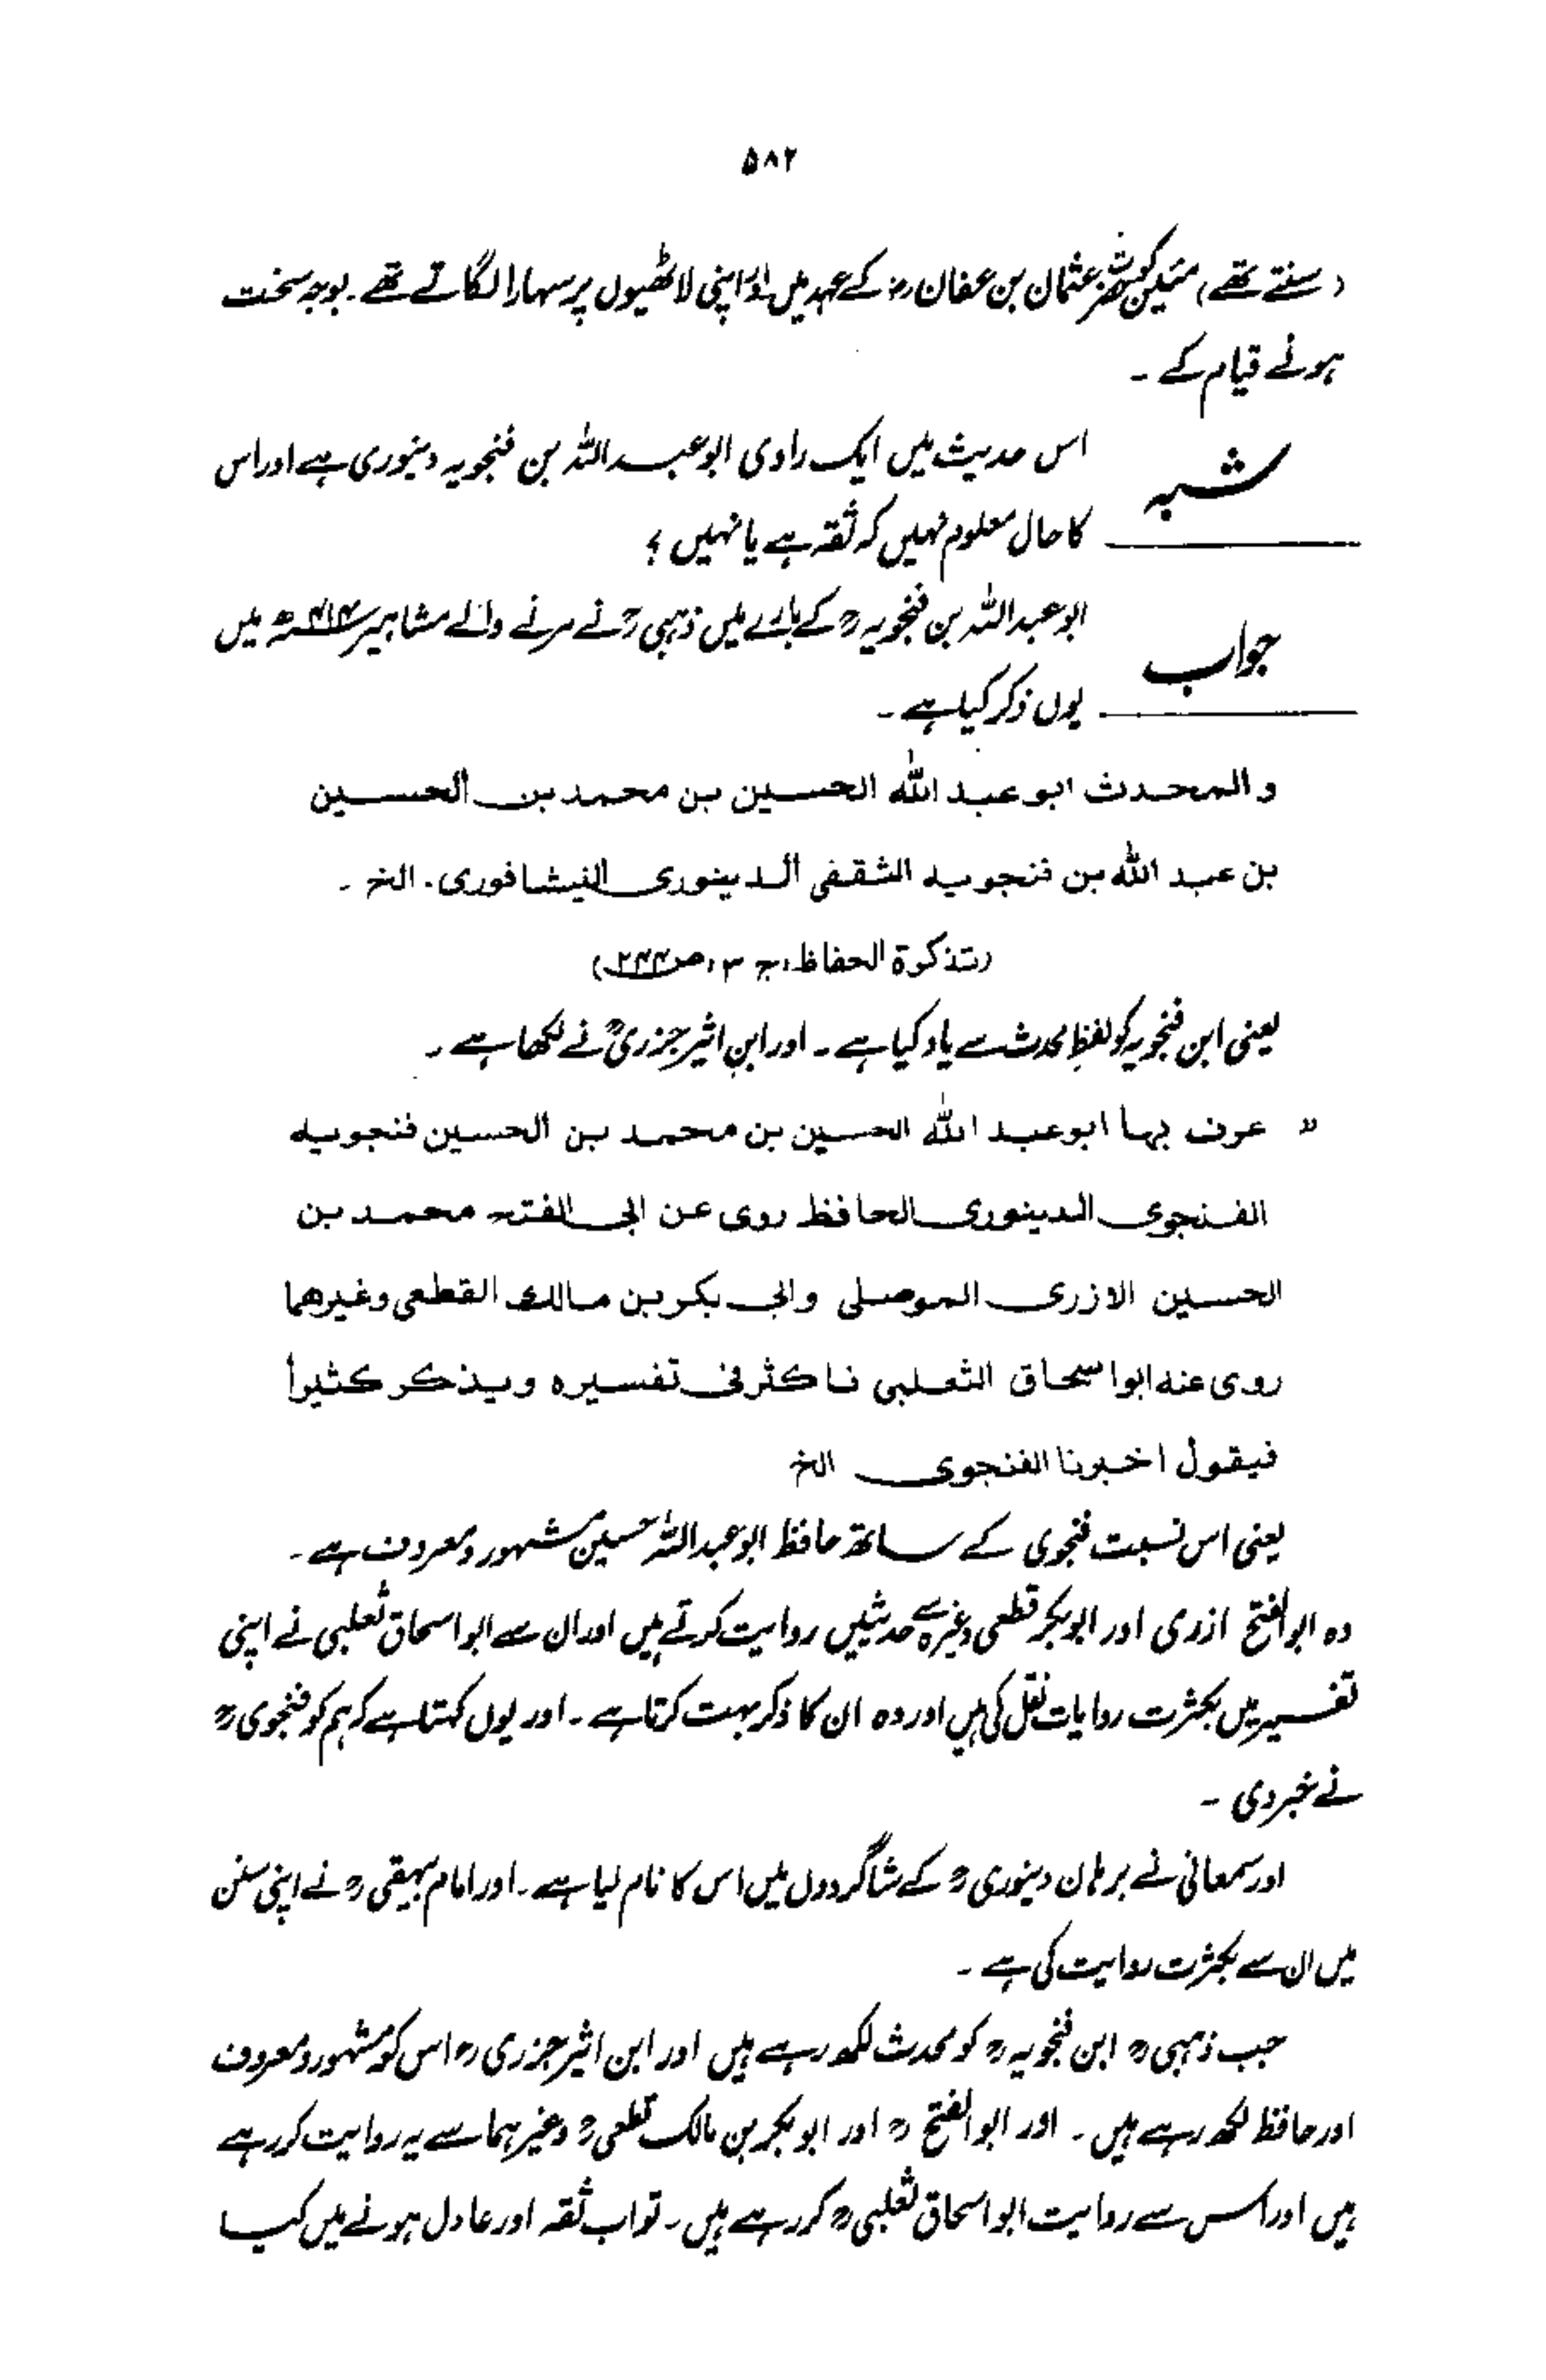 ۵۸۲
(سنتے تھے) مئیکن کو حضرت عثمان بن عفان رض کے عہد میں لوگ اپنی لاٹھیوں پر سہارا لگاتے تھے ۔ بوجہ سخت
ہونے قیام کے ۔
شبہ
اس حدیث میں ایک راوی ابو عبداللہ بن فنجویہ دینوری ہے اور اس
کا حال معلوم نہیں کہ ثقہ ہے یا نہیں ؟
جواب
ابو عبداللہ بن فنجویہ رح کے بارے میں ذہبی رح نے مرنے والے مشاہیر ۴۱۴ھ میں
یوں ذکر کیا ہے ۔
والمحدث ابو عبد الله الحسین بن محمد بن الحسین
بن عبد الله بن فنجویه الثقفی الدینوری النیشافوری ۔ الخ ۔
(تذکرة الحفاظ، ج ۳، ص ۲۴۴)
یعنی ابن فنجویہ کو لفظِ محدث سے یاد کیا ہے ۔ اور ابنِ اثیر جزریؒ نے لکھا ہے ۔
" عرف بہا ابو عبد الله الحسین بن محمد بن الحسین فنجویه
الفنجوی الدینوری الحافظ روی عن ابی الفتح محمد بن
الحسین الازری الموصلی وابی بکر بن مالک القطعی وغیرهما
روی عنه ابو اسحاق الثعلبی فاکثر فی تفسیره ویذکر کثیراً
فیقول اخبرنا الفنجوی الخ
یعنی اس نسبت فنجوی کے ساتھ حافظ ابو عبداللہ حسین مشہور و معروف ہے ۔
وہ ابو الفتح ازری اور ابوبکر قطعی وغیرہ سے حدیثیں روایت کرتے ہیں اور ان سے ابو اسحاق ثعلبی نے اپنی
تفسیر میں بکثرت روایات نقل کی ہیں اور وہ ان کا ذکر بہت کرتا ہے ۔ اور یوں کہتا ہے کہ ہم کو فنجوی رح
نے خبر دی ۔
اور سمعانی نے برہان دینوری رح کے شاگردوں میں اس کا نام لیا ہے ۔ اور امام بیہقی رح نے اپنی سنن
میں ان سے بکثرت روایت کی ہے ۔
جب ذہبی رح ابن فنجویہ رح کو محدث لکھ رہے ہیں اور ابن اثیر جزری رح اس کو مشہور و معروف
اور حافظ لکھ رہے ہیں ۔ اور ابو الفتح رح اور ابوبکر بن مالک قطعی رح وغیرہما سے یہ روایت کر رہے
ہیں اور اس سے روایت ابو اسحاق ثعلبی رح کر رہے ہیں ۔ تو اب ثقہ اور عادل ہونے میں کیا